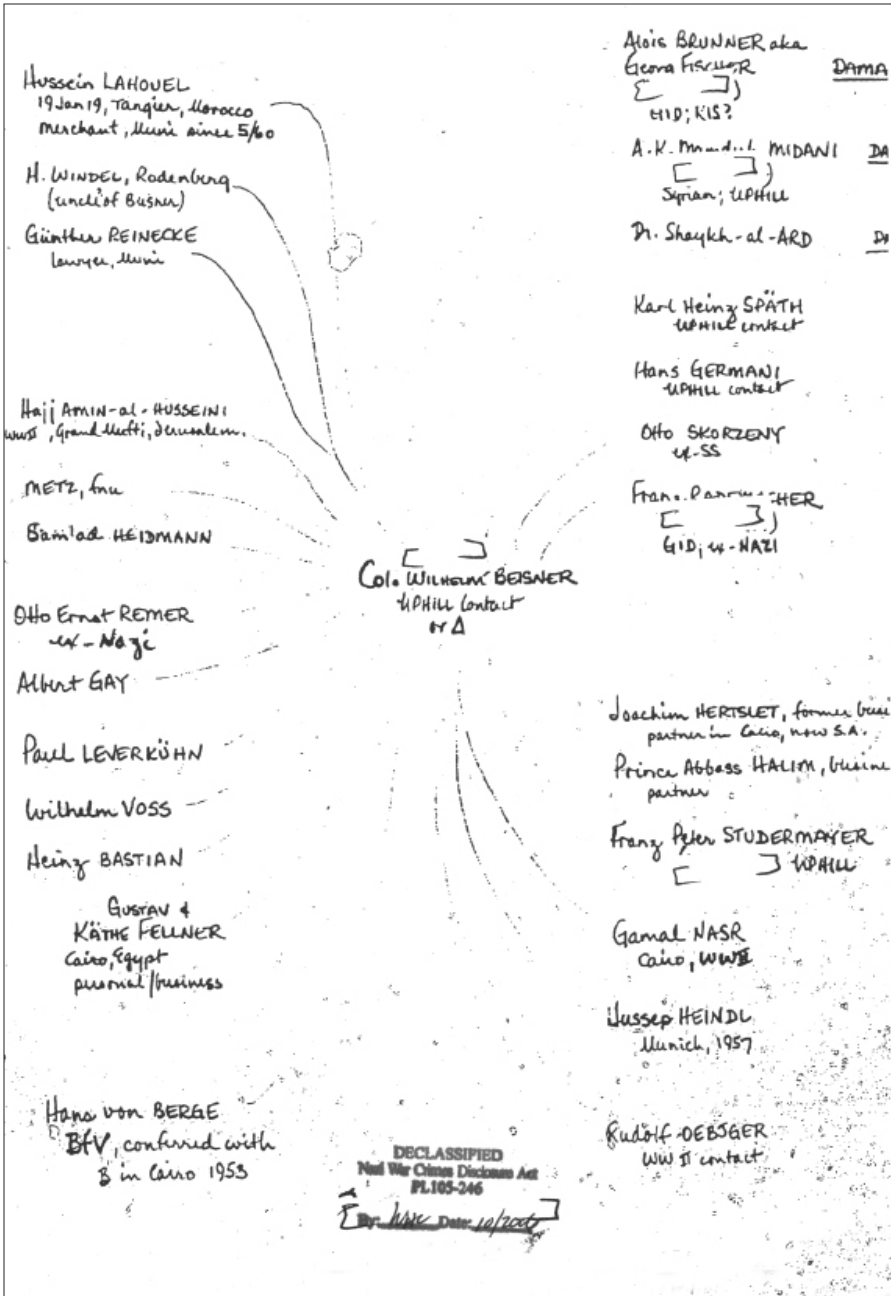 Hussein LAHOUEL
19 Jan 19, Tangier, Morocco
merchant, Muni since 5/60
H. WINDEL, Rodenberg
(uncle of Beisner)
Günther REINECKE
lawyer, Muni
Hajj AMIN-al-HUSSEINI
WWII, Grand Mufti, Jerusalem.
METZ, fnu
HEIDMANN
Otto Ernst REMER
ex-Nazi
Albert GAY
Paul LEVERKÜHN
Wilhelm VOSS
Heinz BASTIAN
GUSTAV &
KÄTHE FELLNER
Cairo, Egypt
personal/business
Hans von BERGE
BfV, conferred with
B in Cairo 1953
[ ]
Col. WILHELM BEISNER
UPHILL Contact
or Δ
Alois BRUNNER aka
Georg FISCHER
DAMA
[ ])
GID; KIS?
A.K. MIDANI
DA
[ ])
Syrian; UPHILL
Dr. Shaykh-al-ARD
Karl Heinz SPÄTH
UPHILL contact
Hans GERMANI
UPHILL contact
Otto SKORZENY
ex-SS
Franz HER
[ ])
GID; ex-NAZI
Joachim HERTSLET, former busi
partner in Cairo, now S.A.
Prince Abbass HALIM, busine
partner
Franz Peter STUDERMAYER
[ ] UPHILL
Gamal NASR
Cairo, WWII
Jussep HEINDL
Munich, 1957
Rudolf
WW II contact
DECLASSIFIED
Nazi War Crimes Disclosure Act
PL105-246
[By: Date: ]